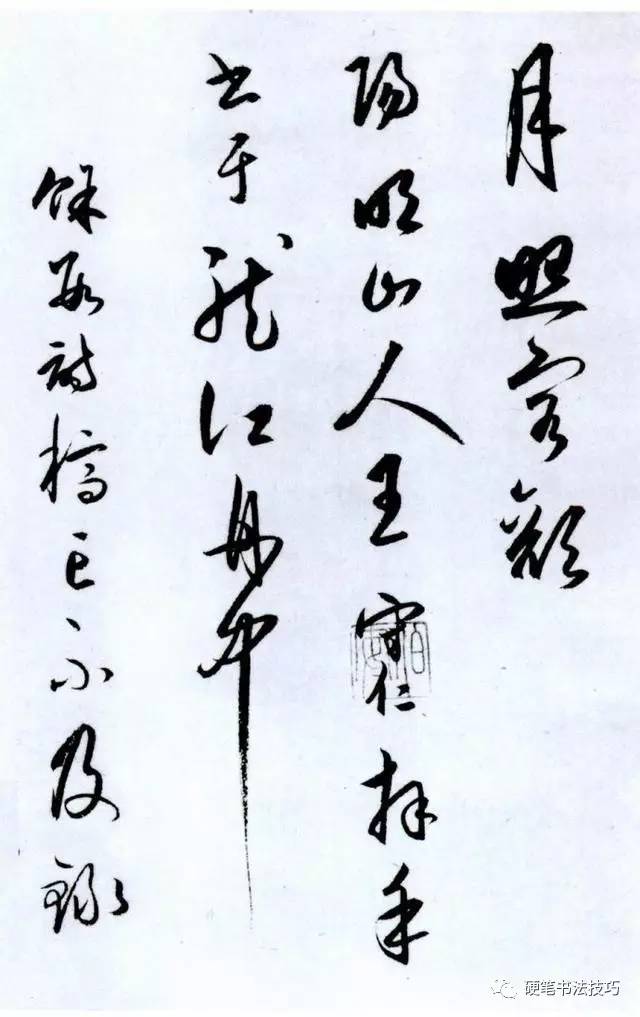 月照容顏
陽明山人王守仁拜手
書于龍江舟中
餘數詩稿亡不及錄
硬笔书法技巧